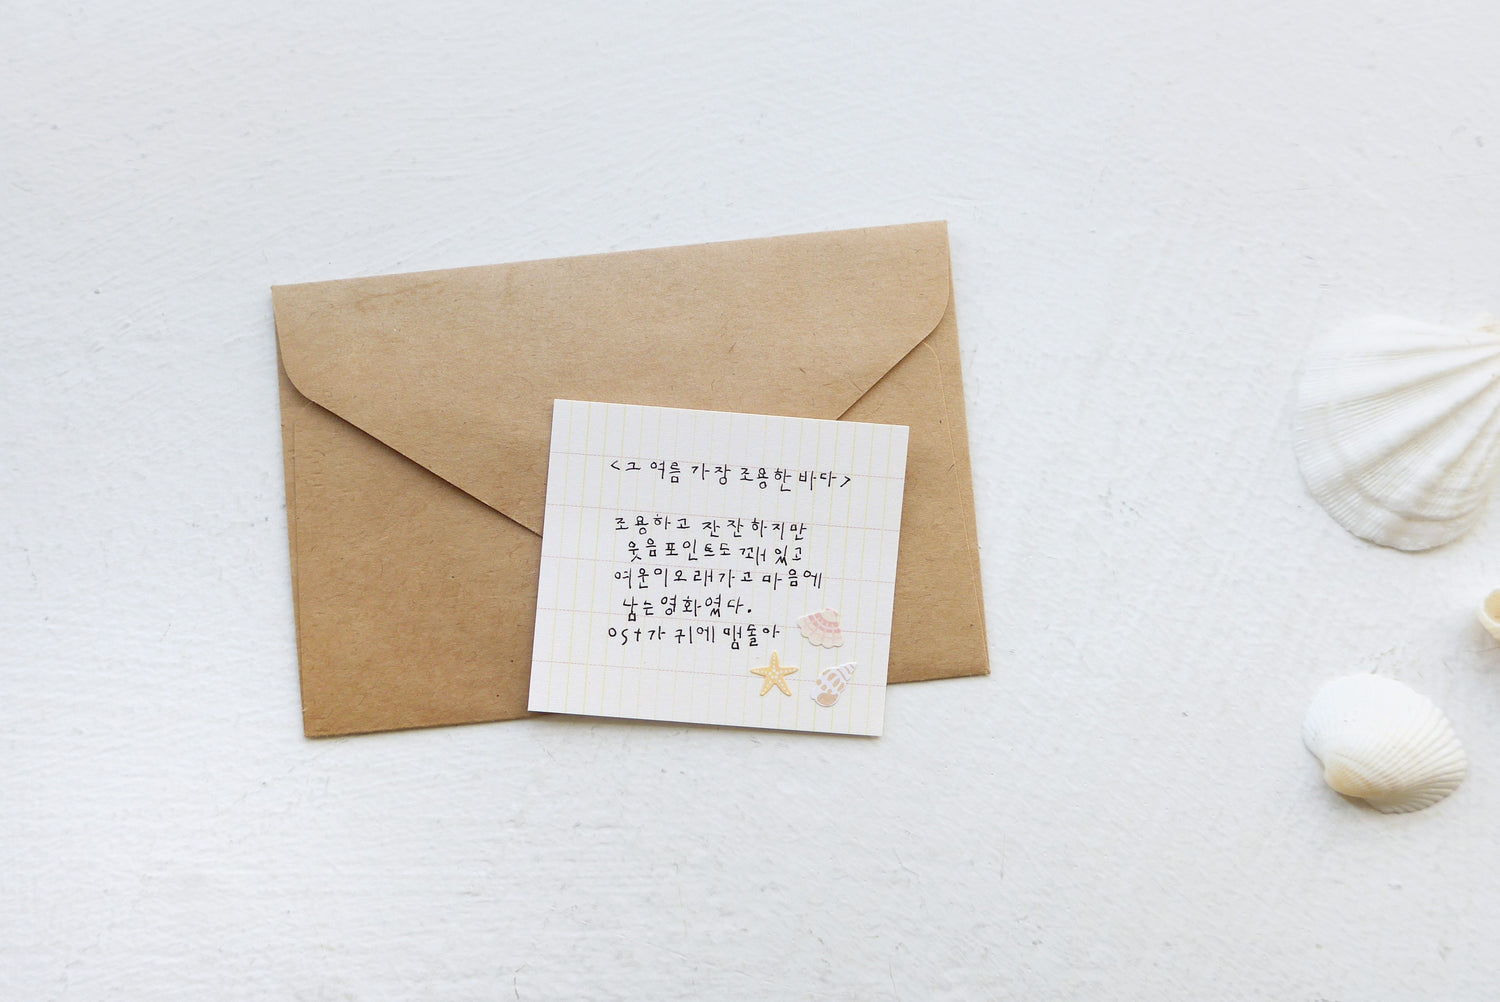 <그 여름 가장 조용한 바다>
조용하고 잔잔하지만
웃음포인트도 꽤 있고
여운이오래가고 마음에
남는영화였다.
OSt가 귀에 맴돌아